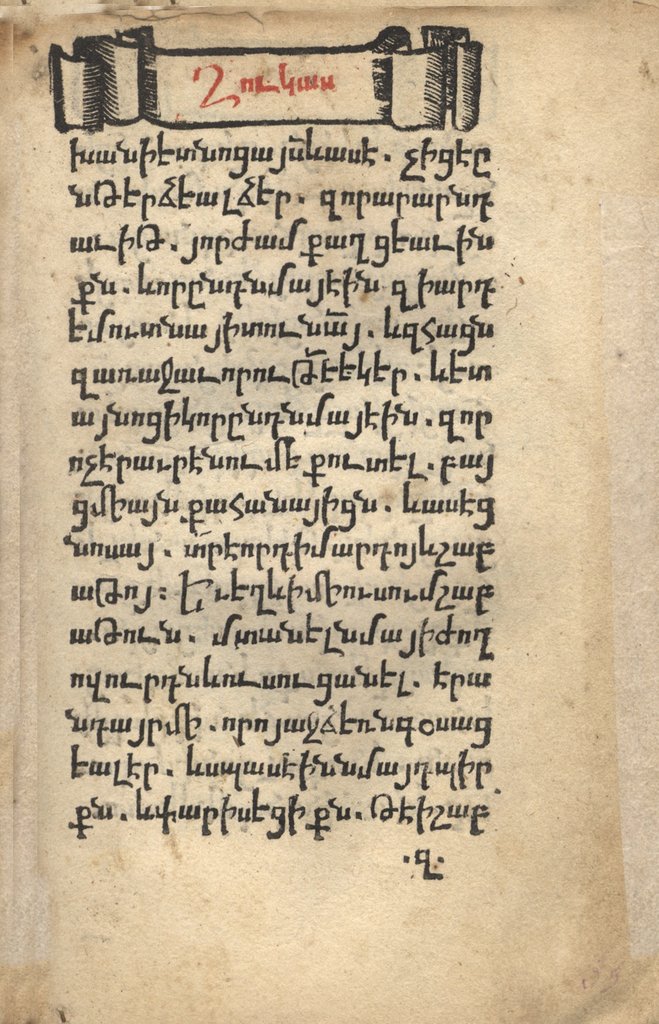 Ղուկաս
խանիետնոցայնևասէ. չիցէը
նթերձեալձեր. զորարարնդ
աւիթ. յորժամ քաղցեաւին
քն. ևորընդնմայէին զիարդ
եմուտնայիտունն՟այ. ևզհացն
զառաջաւորութ՟եեկեր. ևետ
այնոցիկորընդնմայէին. զոր
ոչէրաւրէնումեքուտել. բայ
ցմիայն քահանայիցն. ևասէց
նոսայ. տ՟րէորդիմարդոյևշաբ
աթոյ։ Եւեղևիմիւսումշաբ
աթուն. մտանելնմայիժող
ովուրդնևուսուցանել. էրա
նդայրմի. որոյաջձեռնգօսաց
եալէր. ևսպասէիննմայդպիր
քն. ևփարիսեցիքն. թէիշաբ
.զ.